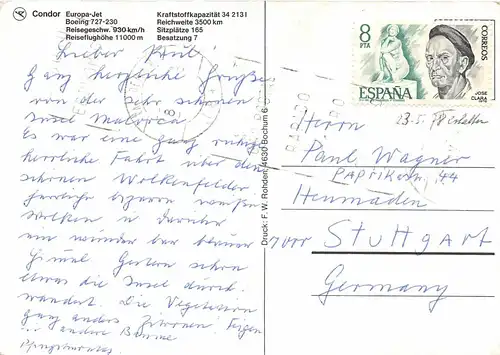 Condor Europa-Jet
Boeing 727-230
Reisegeschw. 930 km/h
Reiseflughöhe 11000 m
Kraftstoffkapazität 34 213 l
Reichweite 3500 km
Sitzplätze 165
Besatzung 7
Lieber Paul!
Ganz herzliche Grüße
von der sehr schönen
Insel Mallorca.
Es war eine ganz ruhige
herrliche Fahrt über den
schönen Wolkenfelder
bizarre
Wolken u. darüber
ein wunderbar blauer
Himmel Gestern schon
etwas die Insel durch-
wandert. Die Vegetation
ganz anders Zitronen Feigen
andere Bäume
Druck: F. W. Rohden, 4630 Bochum 6
8
PTA
ESPAÑA
CORREOS
JOSE
CLARA
23.5.78 erhalten
Herrn
Paul Wagner
PAPRIKAstr. 44
Heumaden
Stuttgart
Germany